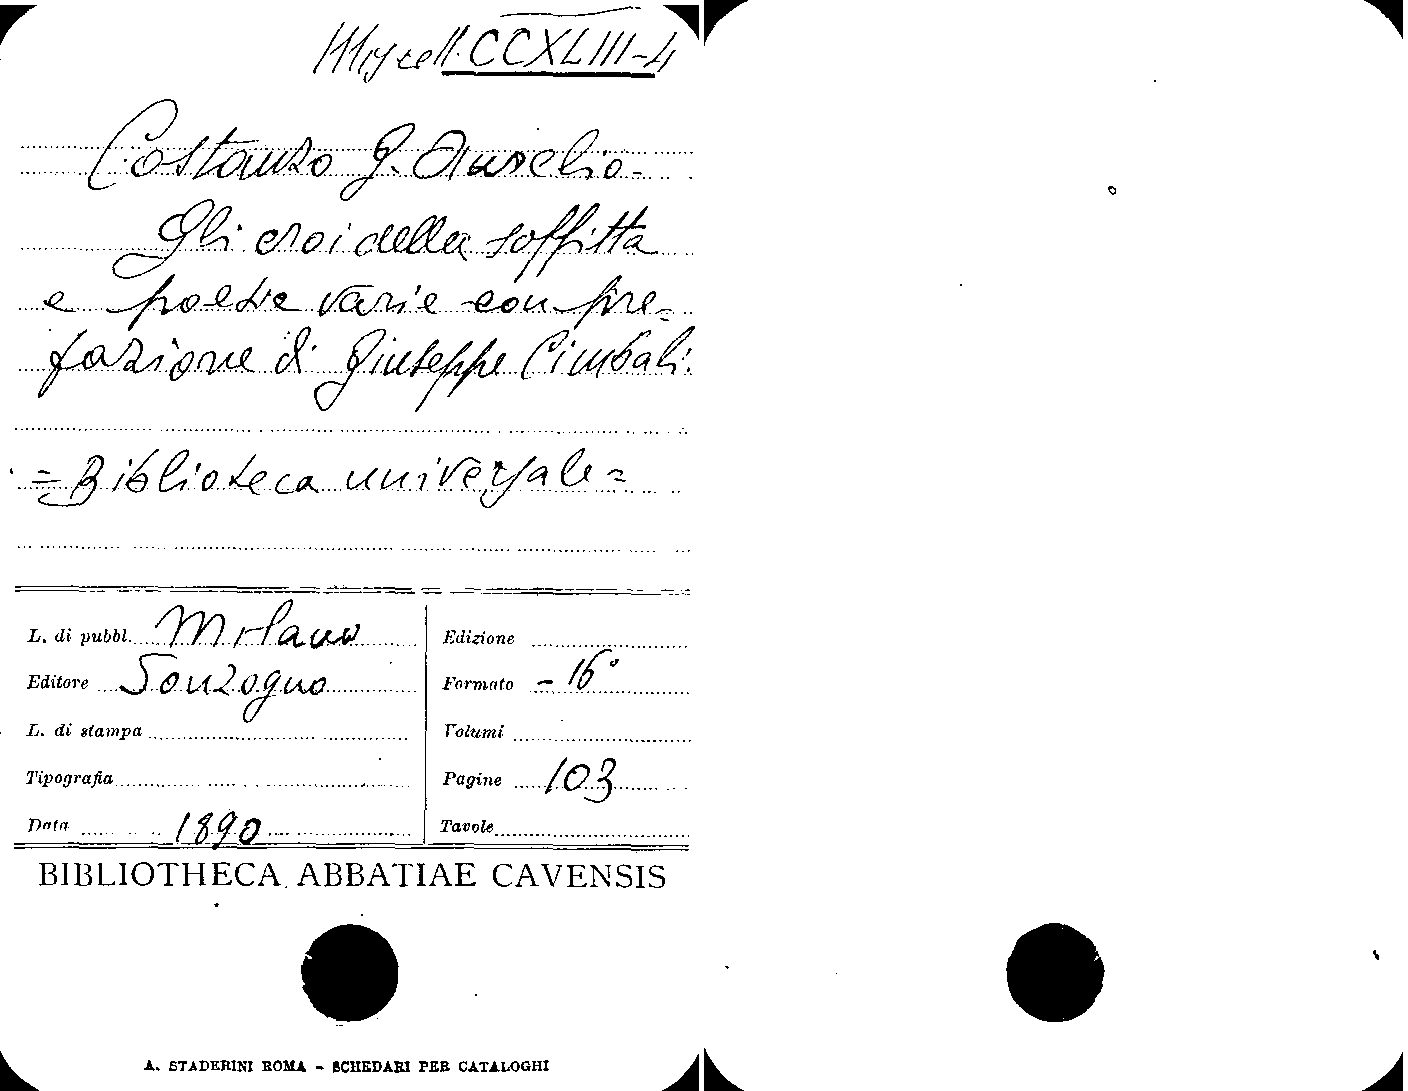 Miscell. CCXLIII-4
Costanzo G. Aurelio.
Gli eroi della soffitta
e poesie varie con pre=
fazione di Giuseppe Cimbali.
=Biblioteca universale=
L. di pubbl. Milano
Editore Sonzogno
L. di stampa
Tipografia
Data 1890
Edizione
Formato - 16°
Volumi
Pagine 103
Tavole
BIBLIOTHECA ABBATIAE CAVENSIS
A. STADERINI ROMA - SCHEDARI PER CATALOGHI